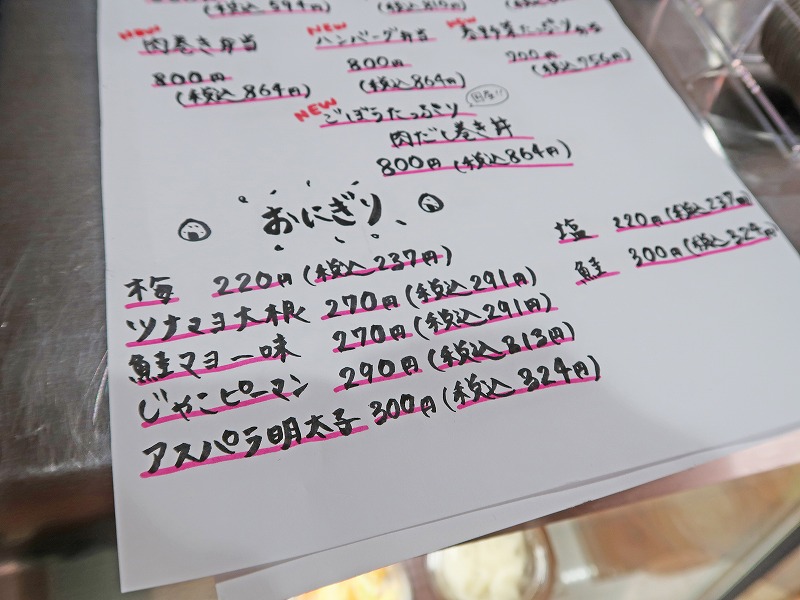 (税込594円)
(税込810円)
NEW 肉巻き弁当
800円
(税込864円)
NEW ハンバーグ弁当
800円
(税込864円)
NEW たっぷり弁当
700円
(税込756円)
NEW ごぼうたっぷり
肉だし巻き丼
800円(税込864円)
おにぎり
梅 220円(税込237円)
ツナマヨ大根 270円(税込291円)
鮭マヨ一味 270円(税込291円)
じゃこピーマン 290円(税込313円)
アスパラ明太子 300円(税込324円)
塩 220円(税込237円)
鮭 300円(税込324円)